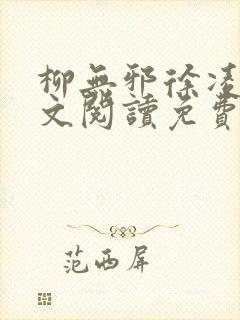 柳無邪徐凌
文閱讀免費
范西屏